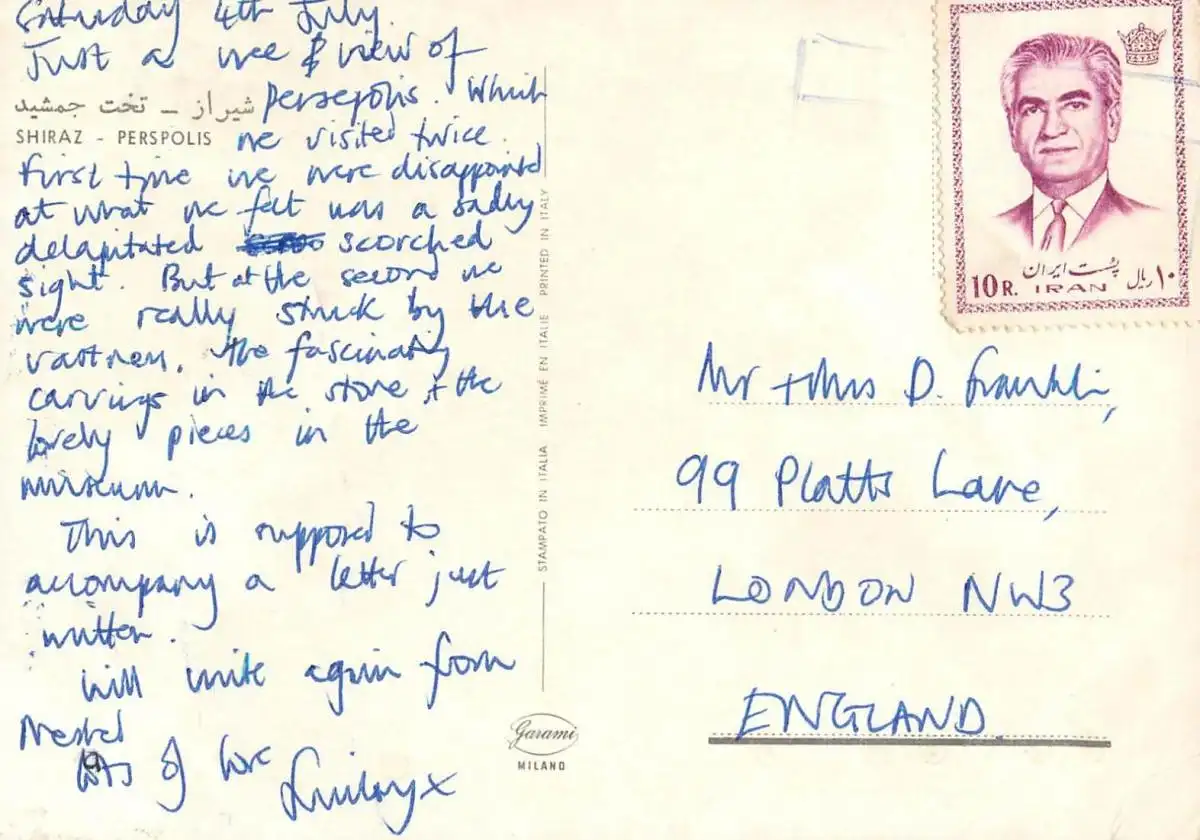 Saturday 4th July.
Just a wee & view of
شیراز – تخت جمشید
Persepolis. Which
SHIRAZ - PERSPOLIS
we visited twice.
First time we were disappointed
at what we felt was a sadly
delapitated scorched
sight. But at the second we
were really struck by the
vastness. the fascinating
carvings in the stone + the
lovely pieces in the
museum.
This is supposed to
accompany a letter just
written.
Will write again from
Lots of love
x
STAMPATO IN ITALIA IMPRIMÉ EN ITALIE PRINTED IN ITALY
Garami
MILANO
پست ایران
10 R. IRAN ۱۰ ریال
Mr + Mrs D. Franklin,
99 Platts Lane,
LONDON NW3
ENGLAND